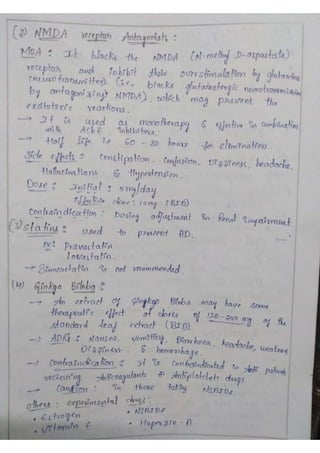 (2) NMDA receptor Antagonists :
MOA : It blocks the NMDA (N-methyl D-aspartate)
receptor and inhibit their overstimulation by glutamine
(neurotransmitter) (i.e., blocks glutamatergic neurotransmission
by antagonizing NMDA), which may prevent the
excitotoxic reactions.
→ It is used as monotherapy & effective in combination
with AchE Inhibitors.
→ Half life is 60 - 80 hours for elimination.
Side effects : constipation, confusion, Dizziness, headache,
Hallucinations & Hypertension.
Dose : Initial : 5mg/day
Effective dose : 10mg (BID)
Contraindication : Dosing adjustment in Renal impairment.
(3) Statins : used to prevent AD.
ex: Pravastatin
Lovastatin.
→ Simvastatin is not recommended.
(4) Ginkgo Biloba :
→ An extract of Ginkgo Biloba may have some
therapeutic effect at doses of 120-240mg of the
standard leaf extract (BID)
→ ADRs : Nausea, vomiting, Diarrhoea, headache, weakness
Dizziness & hemorrhage.
→ Contraindication : It is contraindicated in patients
receiving Anticoagulants & Antiplatelets drugs
→ Caution : in those taking NSAIDs
others : experimental drugs :
• Estrogen • NSAIDs
• Vitamin E • Huprazine-A